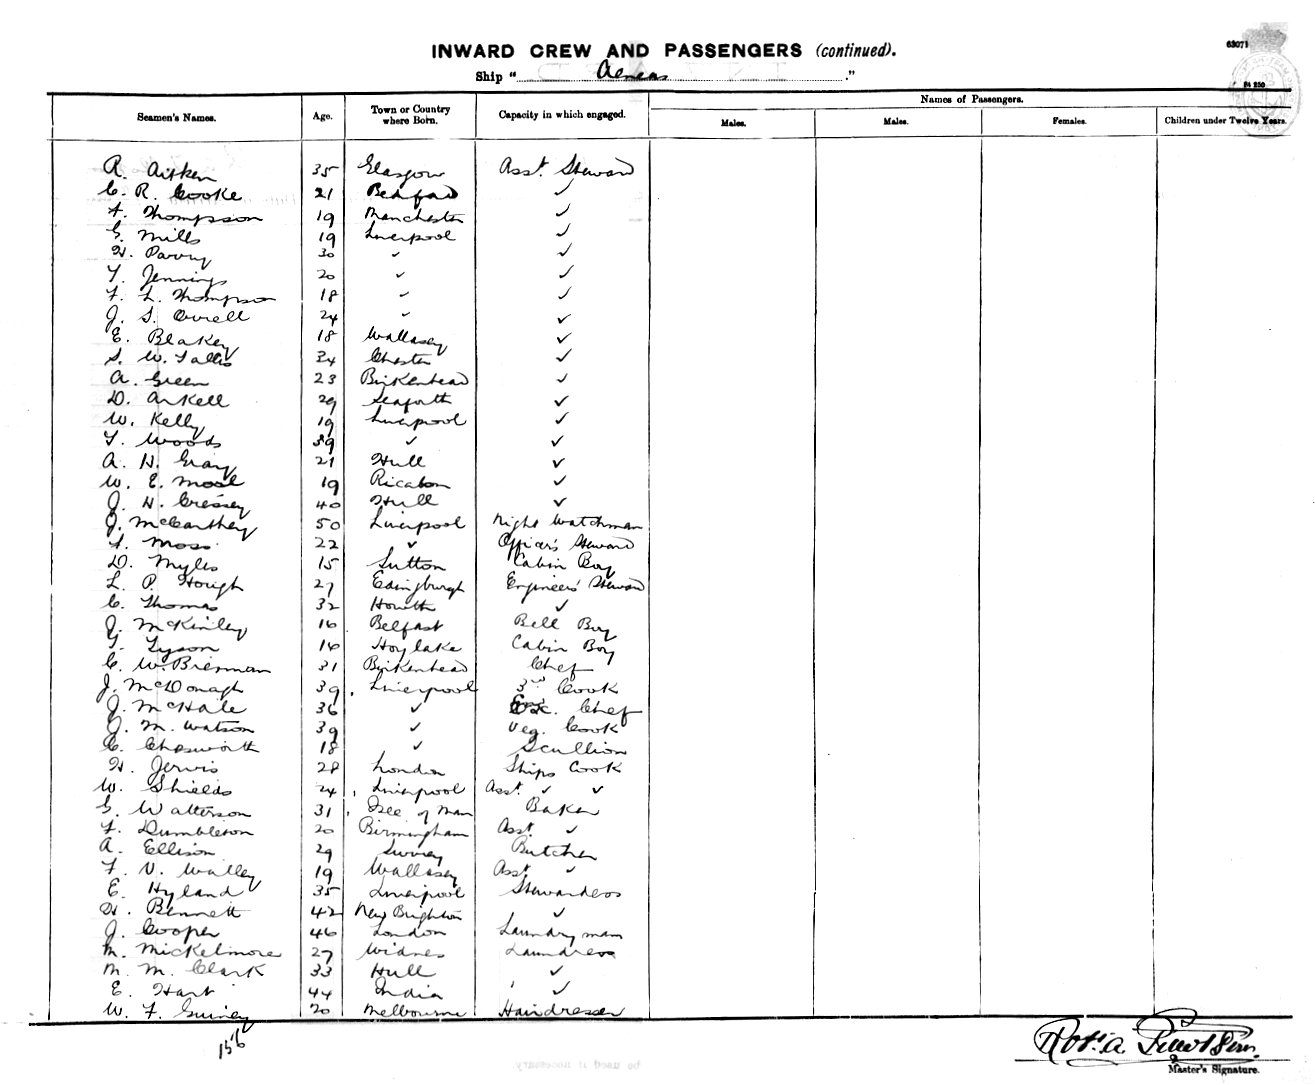 INWARD CREW AND PASSENGERS (continued).
63071
Ship "Aeneas."
Seamen's Names. Age. Town or Country where Born. Capacity in which engaged. Names of Passengers.
Males. Males. Females. Children under Twelve Years.
R. Aitken 35 Glasgow Asst. Steward
C. R. Cooke 21 Bedford ✓
F. Thompson 19 Manchester ✓
G. Mills 19 Liverpool ✓
H. Parry 30 ✓ ✓
T. Jennings 20 ✓ ✓
F. L. Thompson 18 ✓ ✓
J. S. 24 ✓ ✓
E. Blakey 18 Wallasey ✓
S. W. Tallis 34 Chester ✓
A. Green 23 Birkenhead ✓
D. Arkell 29 Seaforth ✓
W. Kelly 19 Liverpool ✓
T. Woods 39 ✓ ✓
A. H. Gray 21 Hull ✓
W. E. Mool 19 ✓
J. H. Cressey 40 Hull ✓
J. McCarthey 50 Liverpool Night Watchman
F. Moss 22 ✓ Officer's Steward
D. Myles 15 Sutton Cabin Boy
L. P. Hough 27 Edingburgh Engineers' Steward
C. Thomas 32 Howth ✓
J. McKinley 16 Belfast Bell Boy
T. Tyson 16 Hoylake Cabin Boy
C. W. Brennan 31 Birkenhead Chef
J. McDonagh 39 Liverpool 3rd Cook
J. McHale 36 ✓ Chef
J. M. Watson 39 ✓ Veg. Cook
C. Chesworth 18 ✓ Scullion
H. Jervis 28 London Ships Cook
W. Shields 24 Liverpool Asst. ✓ ✓
G. Watterson 31 Isle of Man Baker
F. Dumbleton 20 Birmingham Asst. ✓
A. Ellison 29 Surrey Butcher
F. V. Walley 19 Wallasey Asst. ✓
E. Hyland 35 Liverpool Stewardess
H. Bennett 42 New Brighton ✓
J. Cooper 46 London Laundryman
M. Mickelmore 27 Widnes Laundress
M. M. Clark 33 Hull ✓
E. Hart 44 India ✓
W. F. Guiney 20 Melbourne Hairdresser
156
Master's Signature.